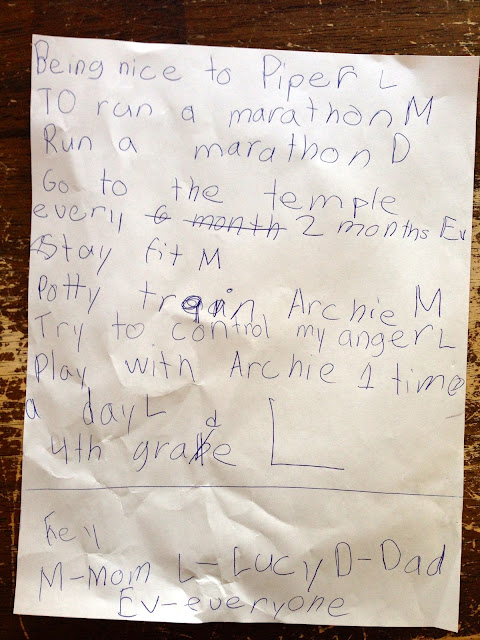 Being nice to Piper L
TO run a marathon M
Run a marathon D
Go to the temple
every 6 month 2 months Ev
Stay fit M
Potty train Archie M
Try to control my anger L
Play with Archie 1 time
a day L
4th grade L
key
M-Mom L-Lucy D-Dad
Ev-everyone